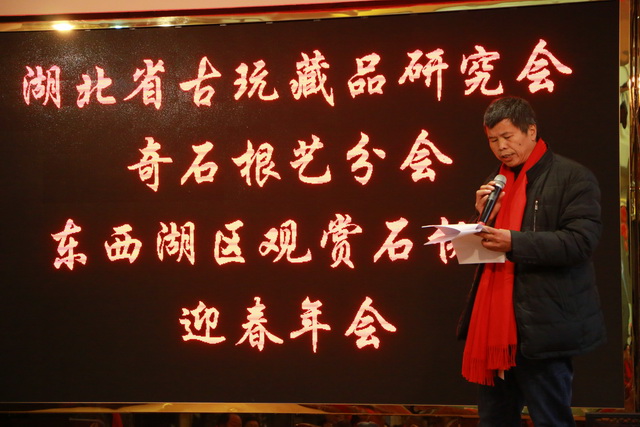 湖北省古玩藏品研究会
奇石根艺分会
东西湖区观赏石
迎春年会